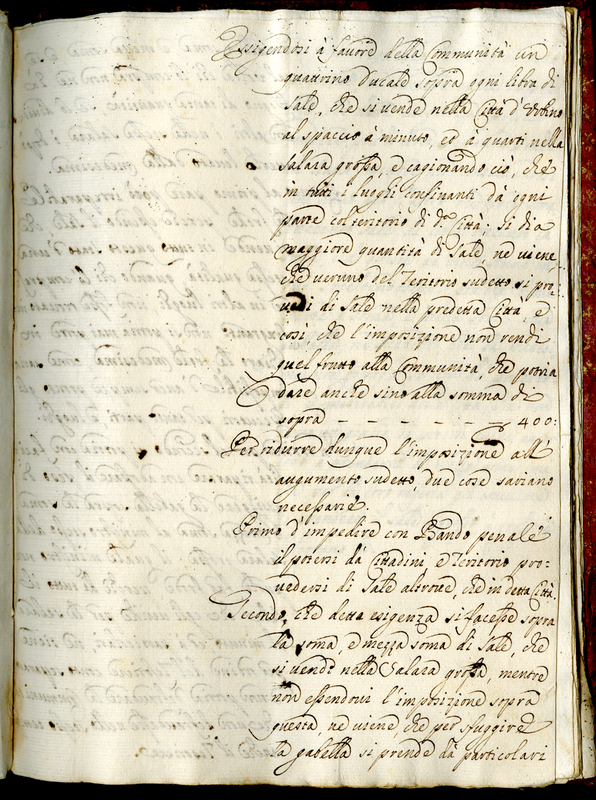 Esigendosi à favore della Communità un
quattrino Ducale sopra ogni libra di
Sale, che si vende nella Città d'Urbino
al spaccio à minuto, et à quarti nella
Salara grossa, e cagionando ciò, che
in tutti i luoghi confinanti dà ogni
parte col teritorio di d.ª Città; si dia
maggiore quantità di Sale, ne viene,
che veruno del Teritorio sudetto si pro-
vedi di Sale nella predetta Città, e
così, che l'imposizione non rendi
quel frutto alla Communità, che potria
dare anche sino alla somma di
sopra - - - - - - - 400:
Per ridurre dunque l'imposizione all'
augumento sudetto, due cose sariano
necessarie.
Primo d'impedire con Bando penale
il potersi dà Cittadini, e Teritorio pro-
vedersi di Sale altrove, che in detta Città.
Secondo, che detta esigenza si facesse sopra
la soma, e mezza soma di Sale, che
si vende nella Salara grossa, mentre
non essendovi l'imposizione sopra
questa, ne viene, che per sfuggire
la gabella si prende dà particolari